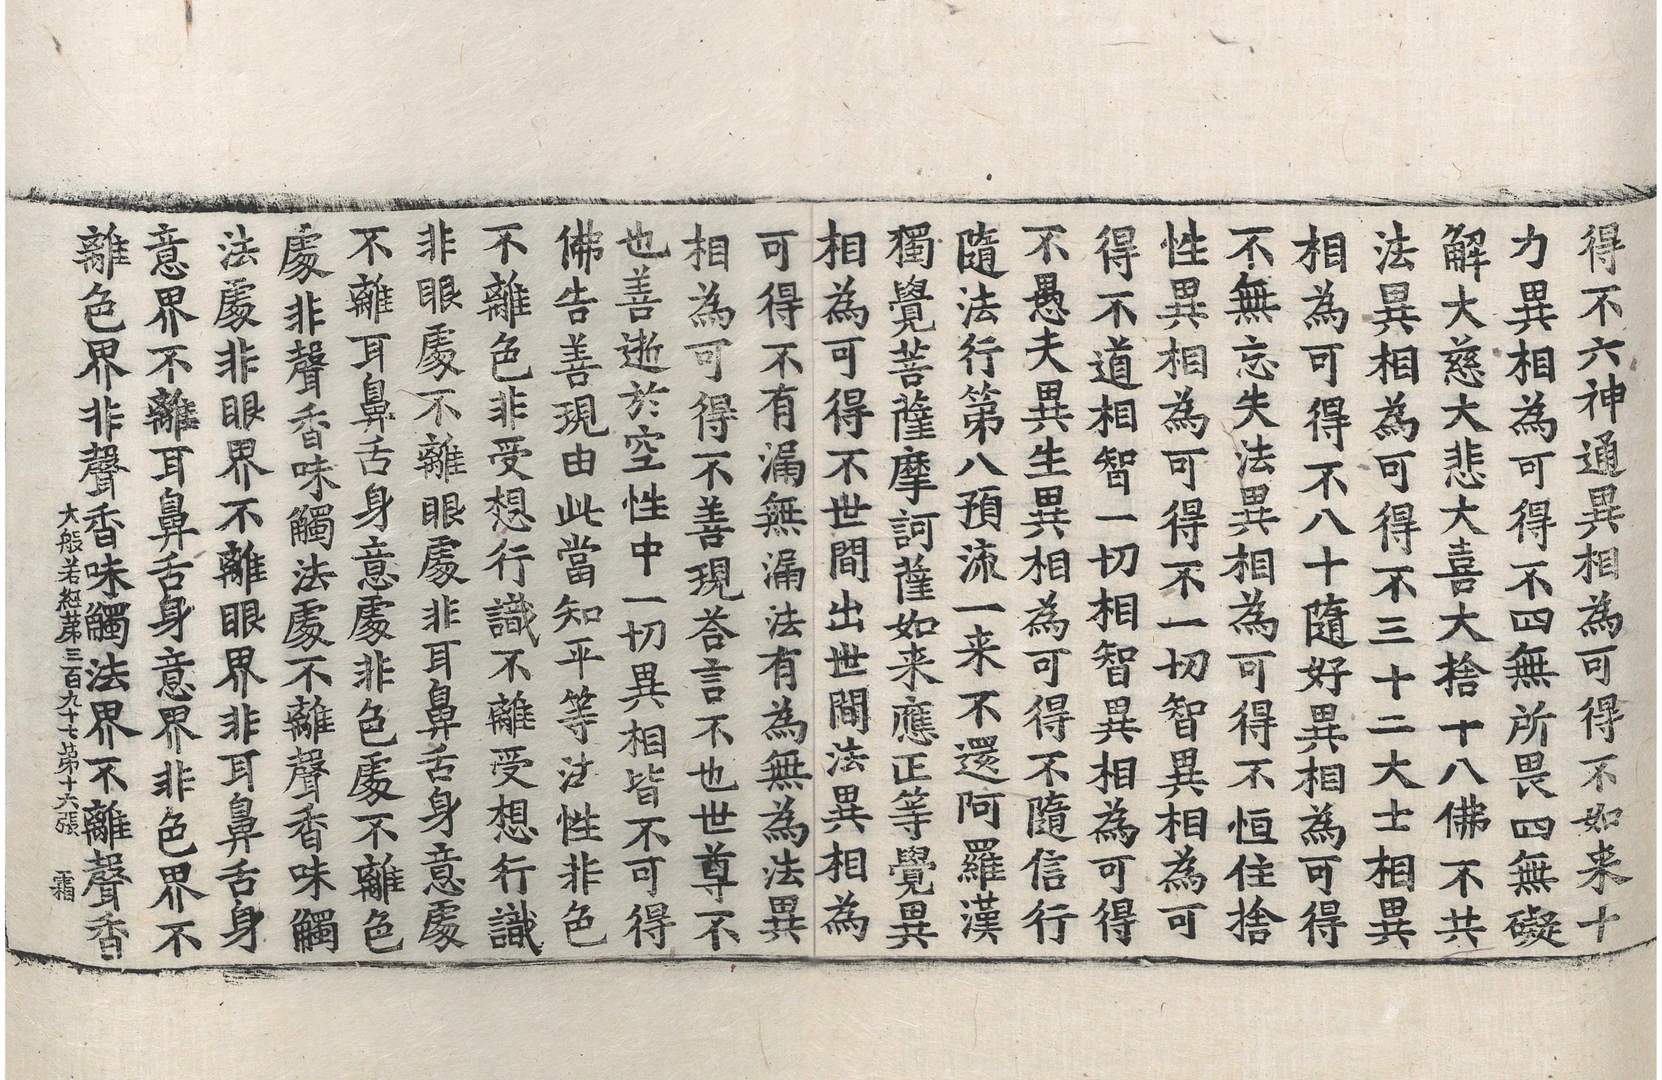 得不六神通異相為可得不如来十
力異相為可得不四無所畏四無礙
解大慈大悲大喜大捨十八佛不共
法異相為可得不三十二大士相異
相為可得不八十隨好異相為可得
不無忘失法異相為可得不恒住捨
性異相為可得不一切智異相為可
得不道相智一切相智異相為可得
不愚夫異生異相為可得不隨信行
隨法行第八預流一来不還阿羅漢
獨覺菩薩摩訶薩如来應正等覺異
相為可得不世間出世間法異相為
可得不有漏無漏法有為無為法異
相為可得不善現荅言不也世尊不
也善逝於空性中一切異相皆不可得
佛告善現由此當知平等法性非色
不離色非受想行識不離受想行識
非眼處不離眼處非耳鼻舌身意處
不離耳鼻舌身意處非色處不離色
處非聲香味觸法處不離聲香味觸
法處非眼界不離眼界非耳鼻舌身
意界不離耳鼻舌身意界非色界不
離色界非聲香味觸法界不離聲香
大般若經苐三百九十七苐十六張 霜